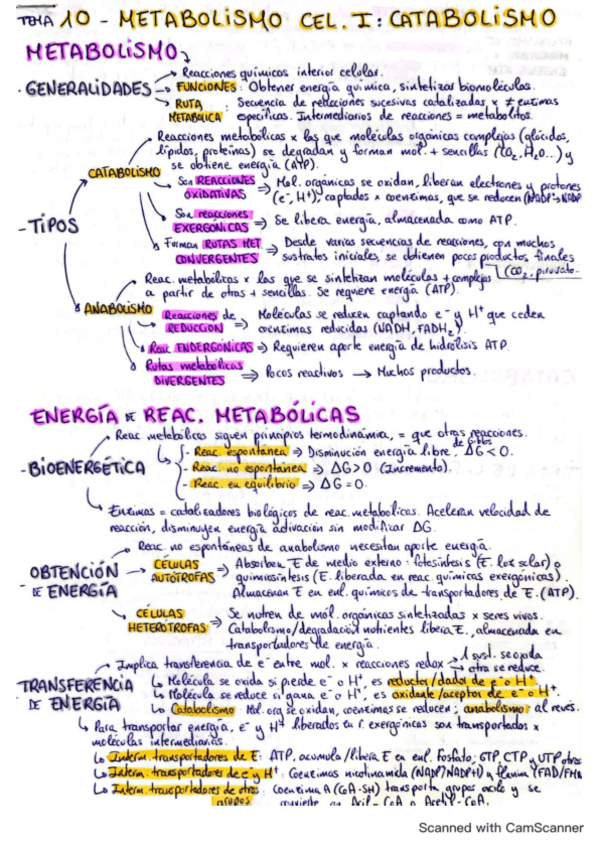 TEMA 10 - METABOLISMO CEL. I: CATABOLISMO
METABOLISMO
· GENERALIDADES
Reacciones químicas interior celular.
FUNCIONES: Obtener energía química, sintetizar biomoléculas.
RUTA METABÓLICA: Secuencia de reacciones sucesivas catalizadas x ≠ enzimas
específicas. Intermediarios de reacciones = metabolitos.
- TIPOS
CATABOLISMO
Reacciones metabólicas x las que moléculas orgánicas complejas (glúcidos,
lípidos, proteínas) se degradan y forman mol. + sencillas (CO2, H2O...) y
se obtiene energía (ATP).
Son REACCIONES OXIDATIVAS ⇒ Mol. orgánicas se oxidan, liberan electrones y protones
(e-, H+), captados x coenzimas, que se reducen (NADP→NADP
Son reacciones EXERGÓNICAS ⇒ Se libera energía, almacenada como ATP.
Forman RUTAS MET. CONVERGENTES ⇒ Desde varias secuencias de reacciones, con muchos
sustratos iniciales, se obtienen pocos productos finales
(CO2, piruvato
ANABOLISMO
Reac. metabólicas x las que se sintetizan moléculas + complejas
a partir de otras + sencillas. Se requiere energía (ATP).
Reacciones de REDUCCIÓN ⇒ Moléculas se reducen captando e- y H+ que ceden
coenzimas reducidas (NADH, FADH2).
Reac. ENDERGÓNICAS ⇒ Requieren aporte energía de hidrólisis ATP.
Rutas metabólicas DIVERGENTES ⇒ Pocos reactivos → Muchos productos.
ENERGÍA DE REAC. METABÓLICAS
- BIOENERGÉTICA
Reac. metabólicas siguen principios termodinámica, = que otras reacciones.
- Reac. espontánea ⇒ Disminución energía libre de Gibbs ΔG < 0.
- Reac. no espontánea ⇒ ΔG>0 (Incremento).
- Reac. en equilibrio ⇒ ΔG=0.
Enzimas = catalizadores biológicos de reac. metabólicas. Aceleran velocidad de
reacción, disminuyen energía activación sin modificar ΔG.
- OBTENCIÓN DE ENERGÍA
Reac. no espontáneas de anabolismo necesitan aporte energía.
CÉLULAS AUTÓTROFAS ⇒ Absorben E de medio externo: fotosíntesis (E. luz solar) o
quimiosíntesis (E. liberada en reac. químicas exergónicas).
Almacenan E en enl. químicos de transportadores de E. (ATP).
CÉLULAS HETERÓTROFAS ⇒ Se nutren de mól. orgánicas sintetizadas x seres vivos.
Catabolismo/degradación nutrientes libera E., almacenada en
transportadores de energía.
- TRANSFERENCIA DE ENERGÍA
Implica transferencia de e- entre mol. x reacciones redox
1 sust. se oxida
otra se reduce.
Molécula se oxida si pierde e- o H+, es reductor/dador de e- o H+.
Molécula se reduce si gana e- o H+, es oxidante/aceptor de e- o H+.
Catabolismo: Mol. org se oxidan, coenzimas se reducen; anabolismo al revés.
Para transportar energía, e- y H+ liberados en r. exergónicas son transportados x
moléculas intermediarias.
Interm. transportadores de E: ATP, acumula/libera E en enl. fosfato; GTP, CTP y UTP otros
Interm. transportadores de e- y H+: Coenzimas nicotinamida (NAD+/NADP+) y flavina (FAD/FMN
Interm. transportadores de otros grupos: coenzima A (CoA-SH) transporta grupos acilo y se
convierte en Acil-CoA o Acetil-CoA.
Scanned with CamScanner